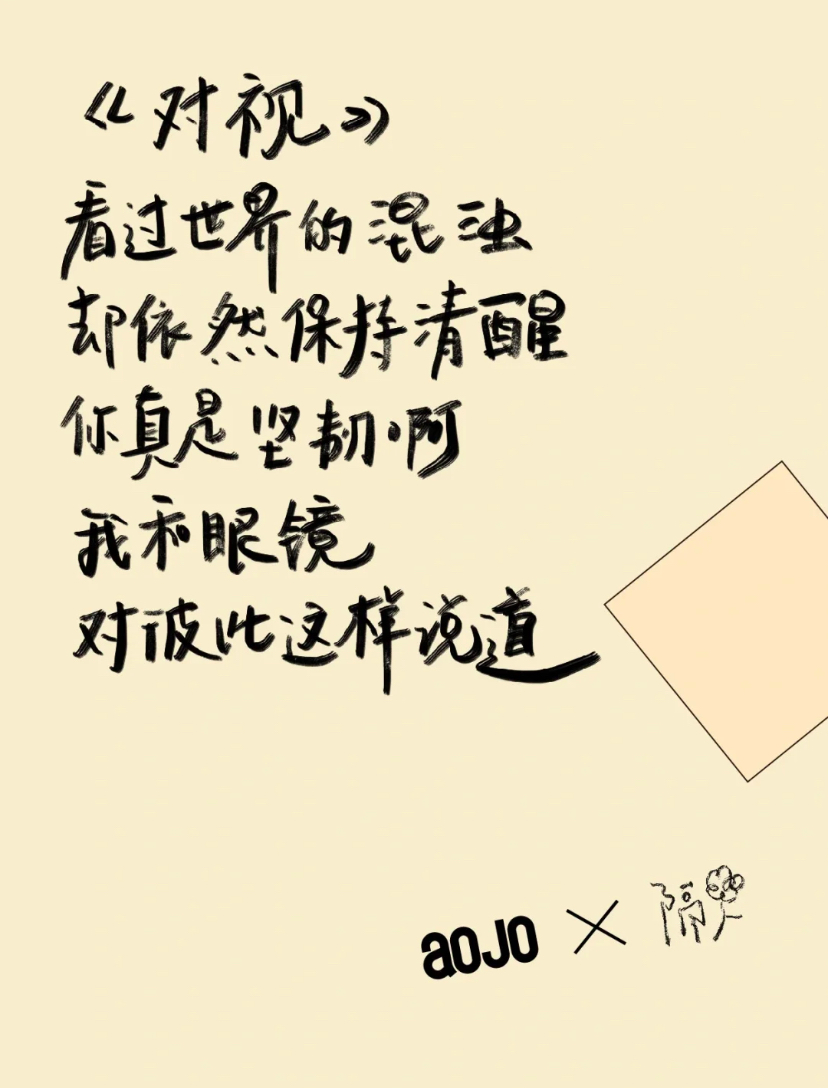 《对视》
看过世界的混浊
却依然保持清醒
你真是坚韧啊
我和眼镜
对彼此这样说道
aojo × 隔